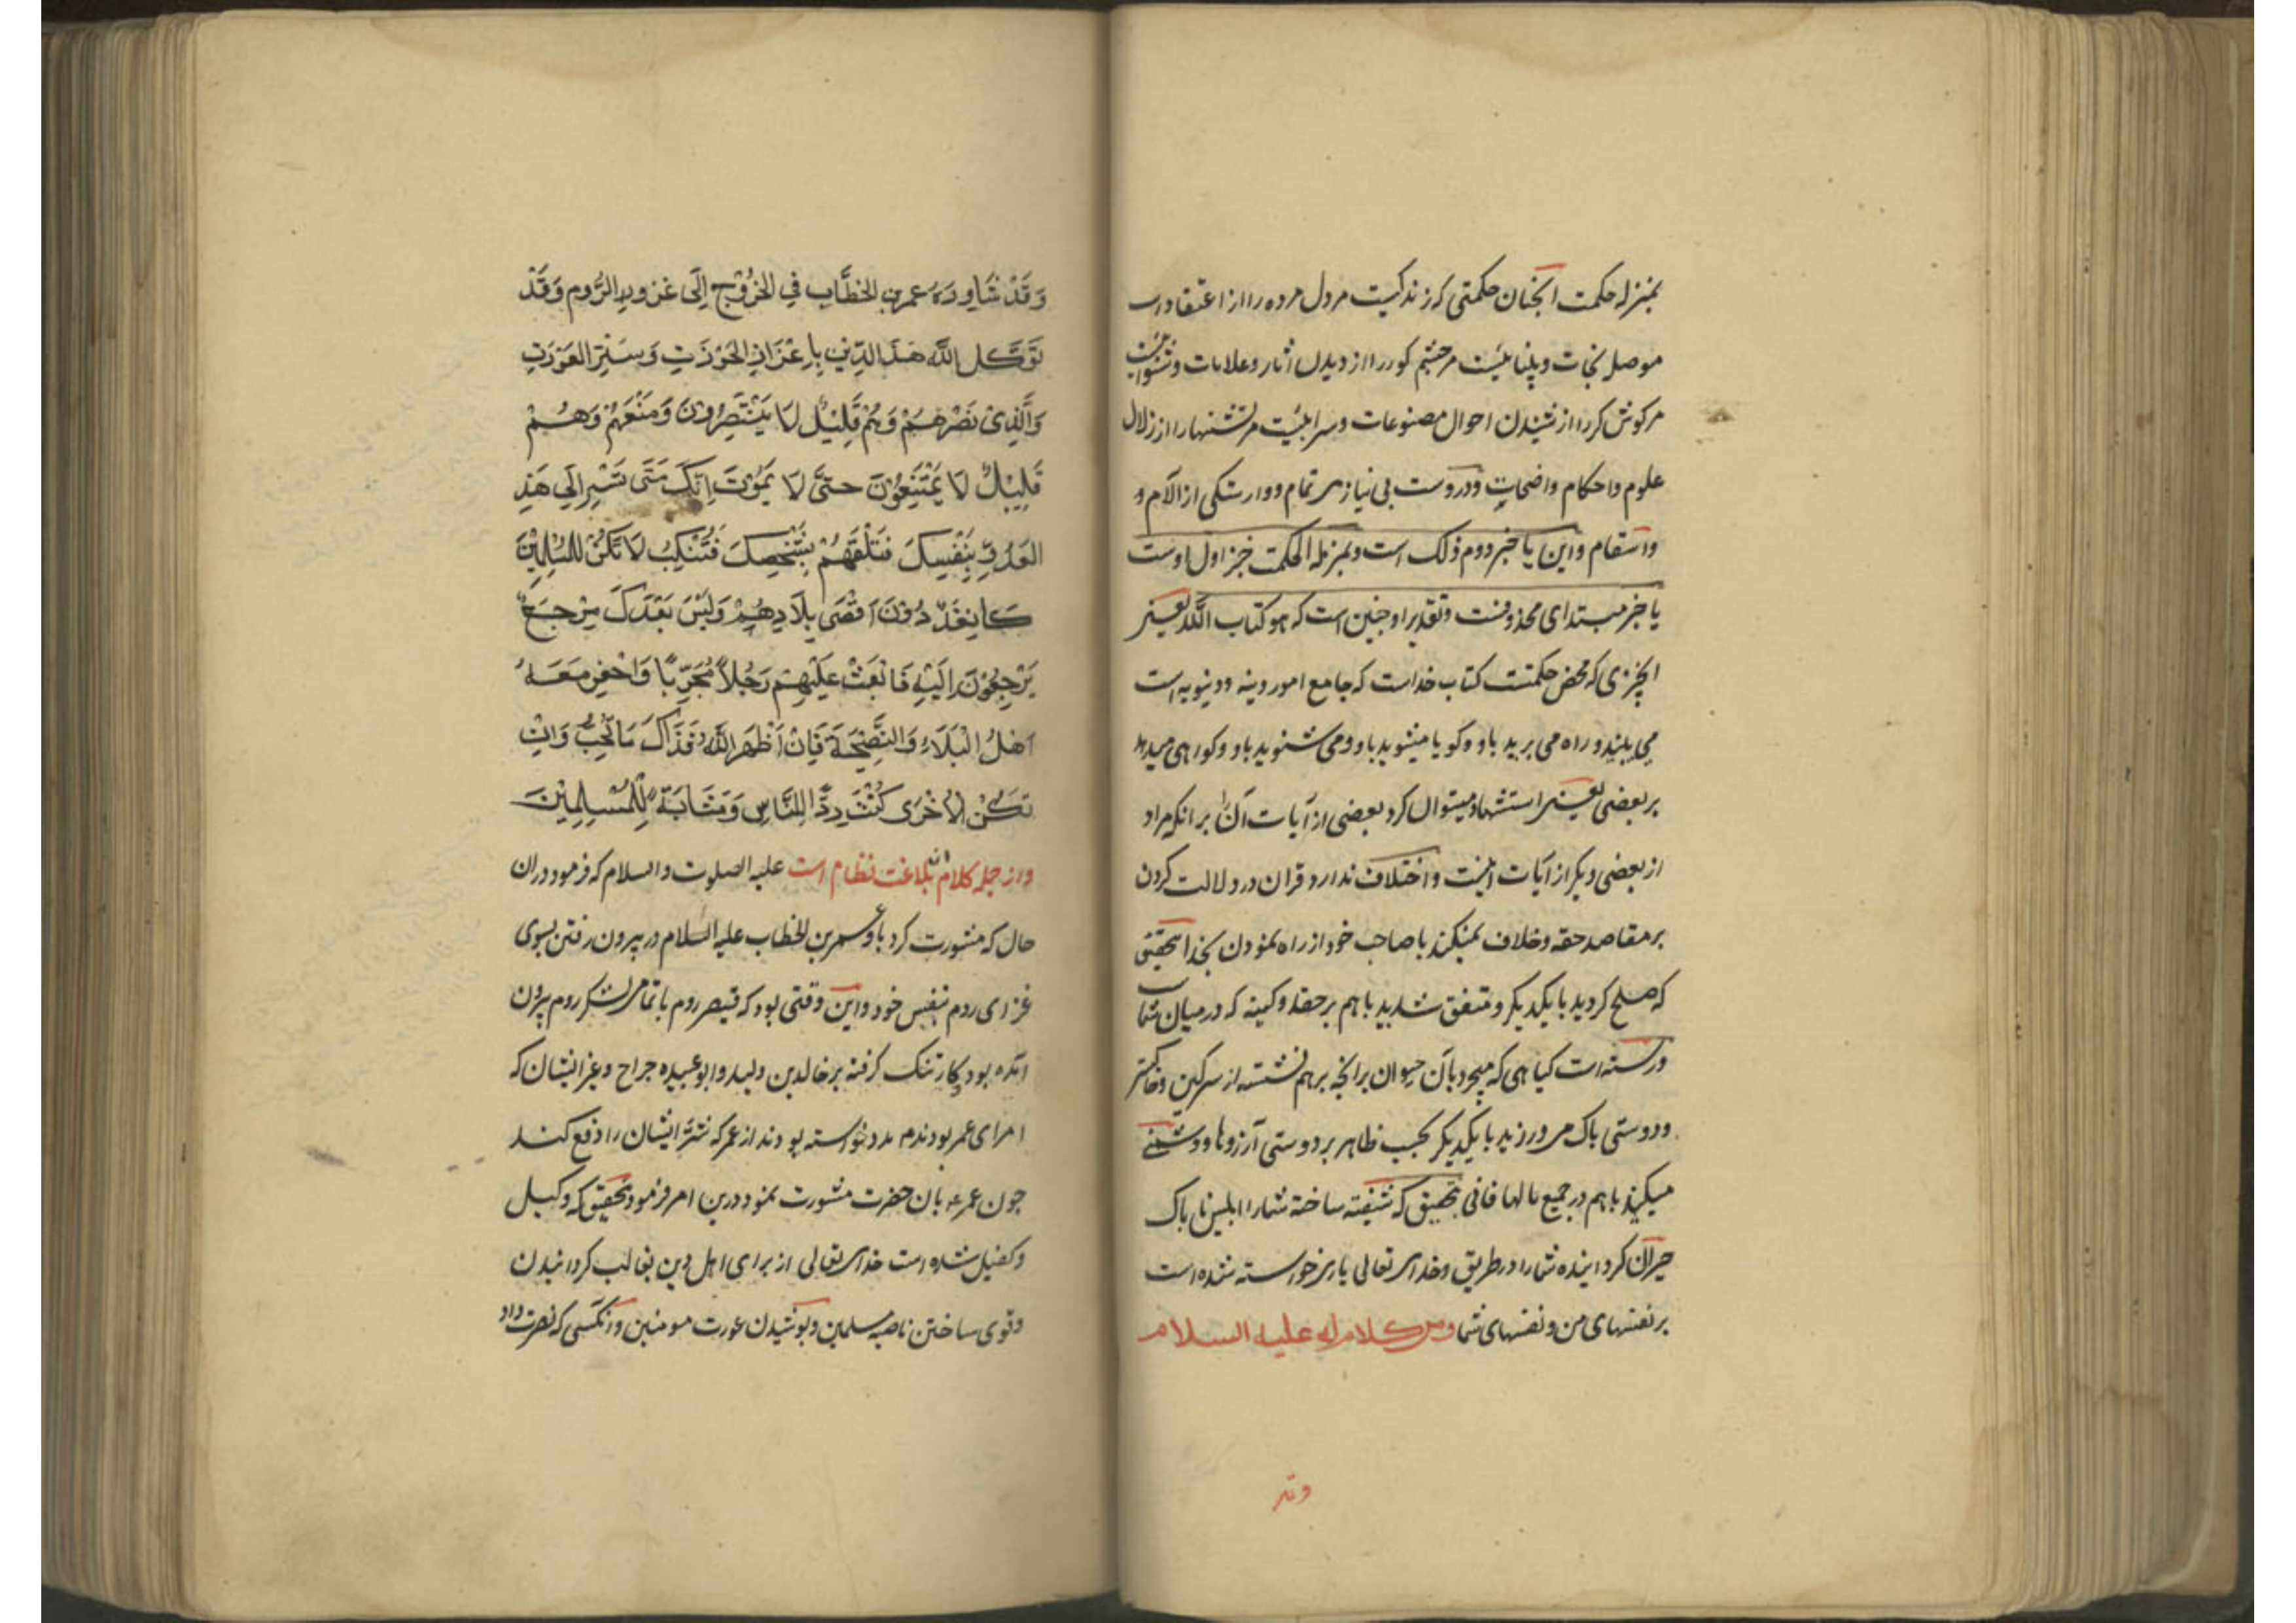 بمنزله حکمت انچنان حکمتی که زندکیست مردل مرده را از اعتقاد
موصل نجات و بینائیست مرچشم کور را از دیدن اثار و علامات و شنوائیست
مرکوش کر را از شنیدن احوال مصنوعات و سیرابیست مرتشنها را از زلال
علوم و احکام واضحات و دروست بی نیازی تمام و وارستکی از آلام و
واسقام و این یا خبر دوم ذلک است و بمنزله الحکمت خبز اول اوست
یا خبر مبتدای محذوفست و تقدیر او چنین است که هو کتاب الله یعنی
انچیزی که محض حکمتست کتاب خداست که جامع امور دینه و دینویه است
می بینید و راه می برید باو و کویا میشوید باو و می شنوید باو و کواهی میدهد
بر بعضی یعنی استشهاد میتوان کرد ببعضی از آیات آن بر انکه مراد
از بعضی دیکر از آیات اینست و اختلاف ندارد قران در دلالت کردن
بر مقاصد حقه و خلاف نمیکند با صاحب خود از راه نمودن بخدا بتحقیق
که صلح کردید با یکدیکر و متفق شدید باهم بر حقد و کینه که در میان شما
ورسته است کیاهی که میچرد بآن حیوان برانچه برهم نشسته از سرکین و خاکستر
و دوستی پاک می ورزید با یکدیکر بحسب ظاهر بر دوستی آرزوها و دشمنی
میکنید باهم در جمیع مالها فانی بتحقیق که شیفته ساخته شما را ابلیس ناپاک
حیران کردانیده شما را در طریق و خدای تعالی یاری خواسته شده است
بر نفسهای من و نفسهای شما ومن کلام له علیه السلام
وقد
وَقَدْ شَاوَرَهُ عمر بن الخطَّاب فِي الخُرُوْجِ اِلَى غزو الرُّومِ وَقَدْ
تَوَكَّلَ اللّه لهذا الدِّينِ بِاِعْزَازِ الحَوْزَتِ وَسَتْرِ العَوْرَتِ
وَالَّذِی نَصَرَهُمْ وَهُمْ قَلِيْلٌ لَا يَنْتَصِرُوْنَ وَمَنَعَهُمْ وَهُمْ
قَلِيْلٌ لَا يَمْتَنِعُوْنَ حتَّى لَا يَمُوْتَ اِنَّكَ مَتَى تَسْرِ اِلَى هَذَ
العَدُوِّ بِنَفْسِكَ فَتَلْقَهُمْ بِشَخْصِكَ فَتُنْكَبْ لَا تَكُنْ لِلْمُسْلِمِيْنَ
كَانِفَةٌ دُوْنَ اَقْصَى بِلَادِهِمْ وَلَيْسَ بَعْدَكَ مِنْ جَعْ
يَرْجِعُوْنَ اِلَيْهِ فَابْعَثْ عَلَيْهِمْ رَجُلاً مُجَرَّبًا وَاحْفِزْ مَعَهُ
اَهْلُ الْبَلَاءِ وَالنَّصِيْحَةِ فَاِنْ اَظْهَرَ اللّهُ فَذَاكَ مَا تُحِبُّ وَاِنْ
تَكُنْ الْاُخْرَى كُنْتَ رِدًّا لِلنَّاسِ وَمَثَابَةً لِّلْمُسْلِمِيْنَ
واز جمله کلام بلاغت نظام است علیه الصلوت والسلام که فرمود دران
حال که مشورت کرد با و عمر بن الخطاب علیه السلام در بیرون رفتن بسوی
غزای روم بنفس خود و این وقتی بود که قیصر روم با تمامی لشکر روم بیرون
آمده بود و کار تنک کرفته بر خالد بن ولید و ابوعبیده جراح و غیر ایشان که
امرای عمر بودند مدد خواسته بودند از عمر که شر ایشان را دفع کند
چون عمر بان حضرت مشورت نمود درین امر فرمود بتحقیق که وکیل
و کفیل شده است خدای تعالی از برای اهل دین بغالب کردانیدن
و قوی ساختن ناصیه مسلمین و پوشیدن عورت مومنین و انکسی که نصرت داد